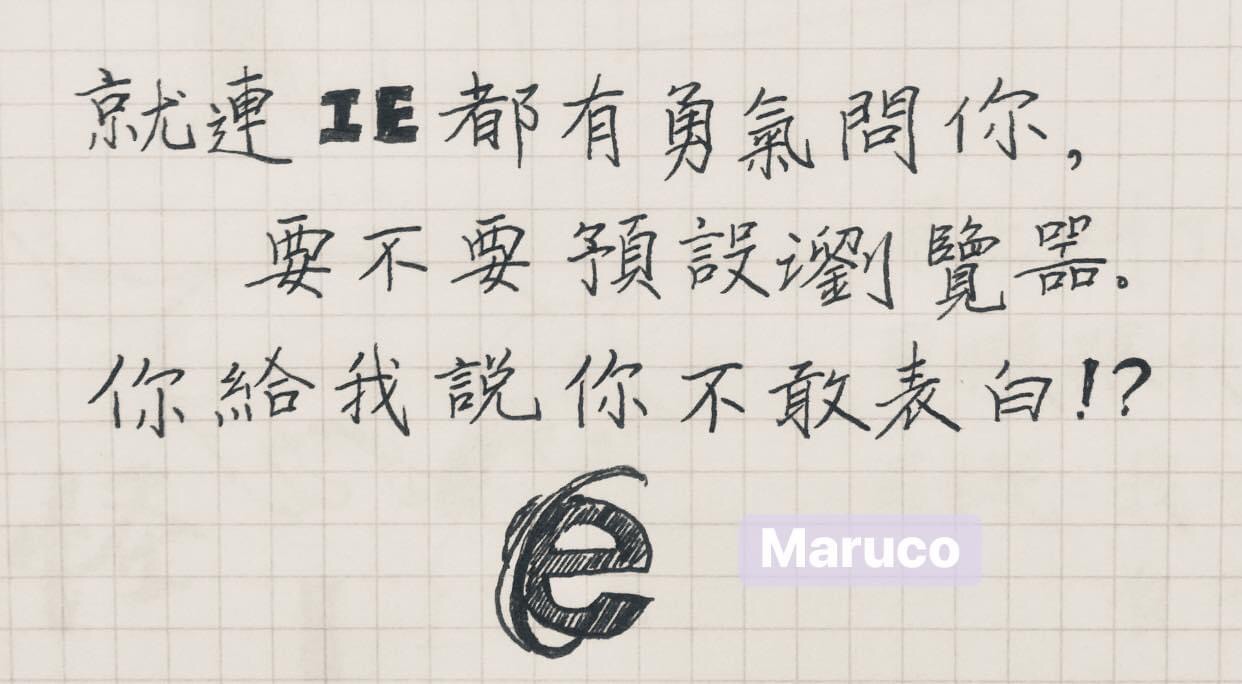 就連IE都有勇氣問你,
要不要預設瀏覽器。
你給我說你不敢表白!?
e
Maruco